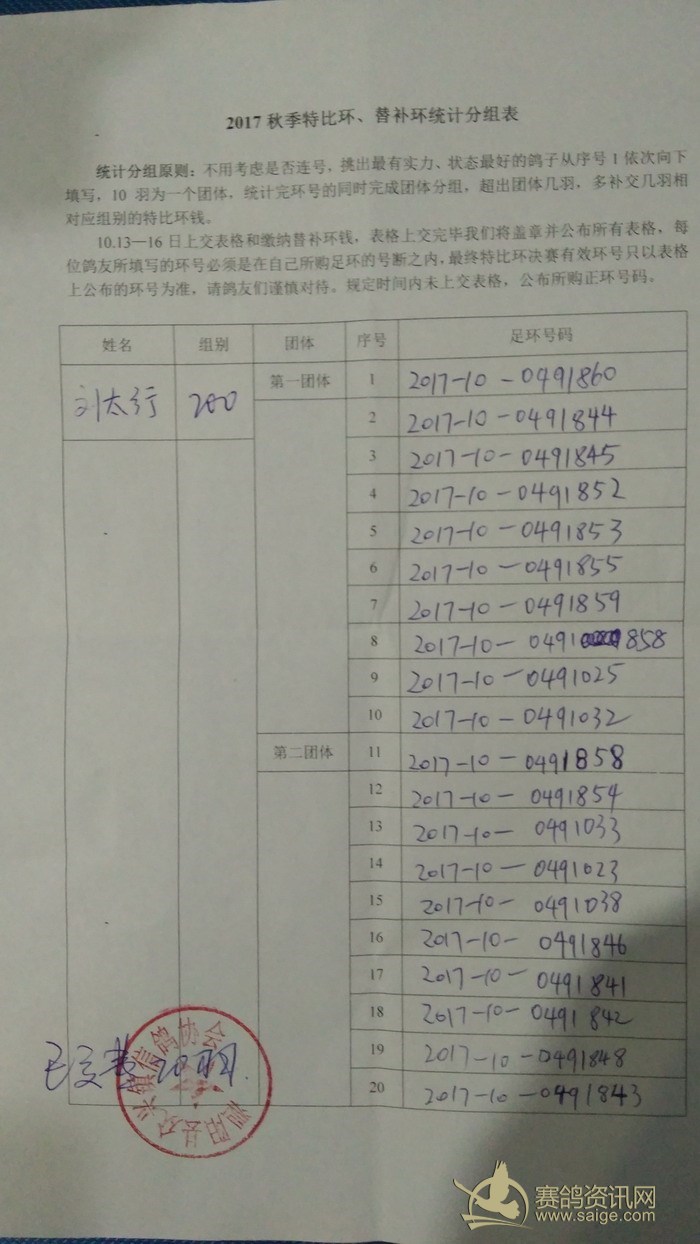 2017 秋季特比环、替补环统计分组表
统计分组原则：不用考虑是否连号，挑出最有实力、状态最好的鸽子从序号 1 依次向下
填写，10 羽为一个团体，统计完环号的同时完成团体分组，超出团体几羽，多补交几羽相
对应组别的特比环钱。
10.13—16 日上交表格和缴纳替补环钱，表格上交完毕我们将盖章并公布所有表格，每
位鸽友所填写的环号必须是在自己所购足环的号断之内，最终特比环决赛有效环号只以表格
上公布的环号为准，请鸽友们谨慎对待。规定时间内未上交表格，公布所购正环号码。
姓名 组别 团体 序号 足环号码
刘太行 200 第一团体 1 2017-10-0491860
2 2017-10-0491844
3 2017-10-0491845
4 2017-10-0491852
5 2017-10-0491853
6 2017-10-0491855
7 2017-10-0491859
8 2017-10-0491858
9 2017-10-0491025
10 2017-10-0491032
第二团体 11 2017-10-0491858
12 2017-10-0491854
13 2017-10-0491033
14 2017-10-0491023
15 2017-10-0491038
16 2017-10-0491846
17 2017-10-0491841
18 2017-10-0491842
19 2017-10-0491848
20 2017-10-0491843
已交费 20羽.
泗阳县 兴镇信鸽协会
赛鸽资讯网
www.saige.com